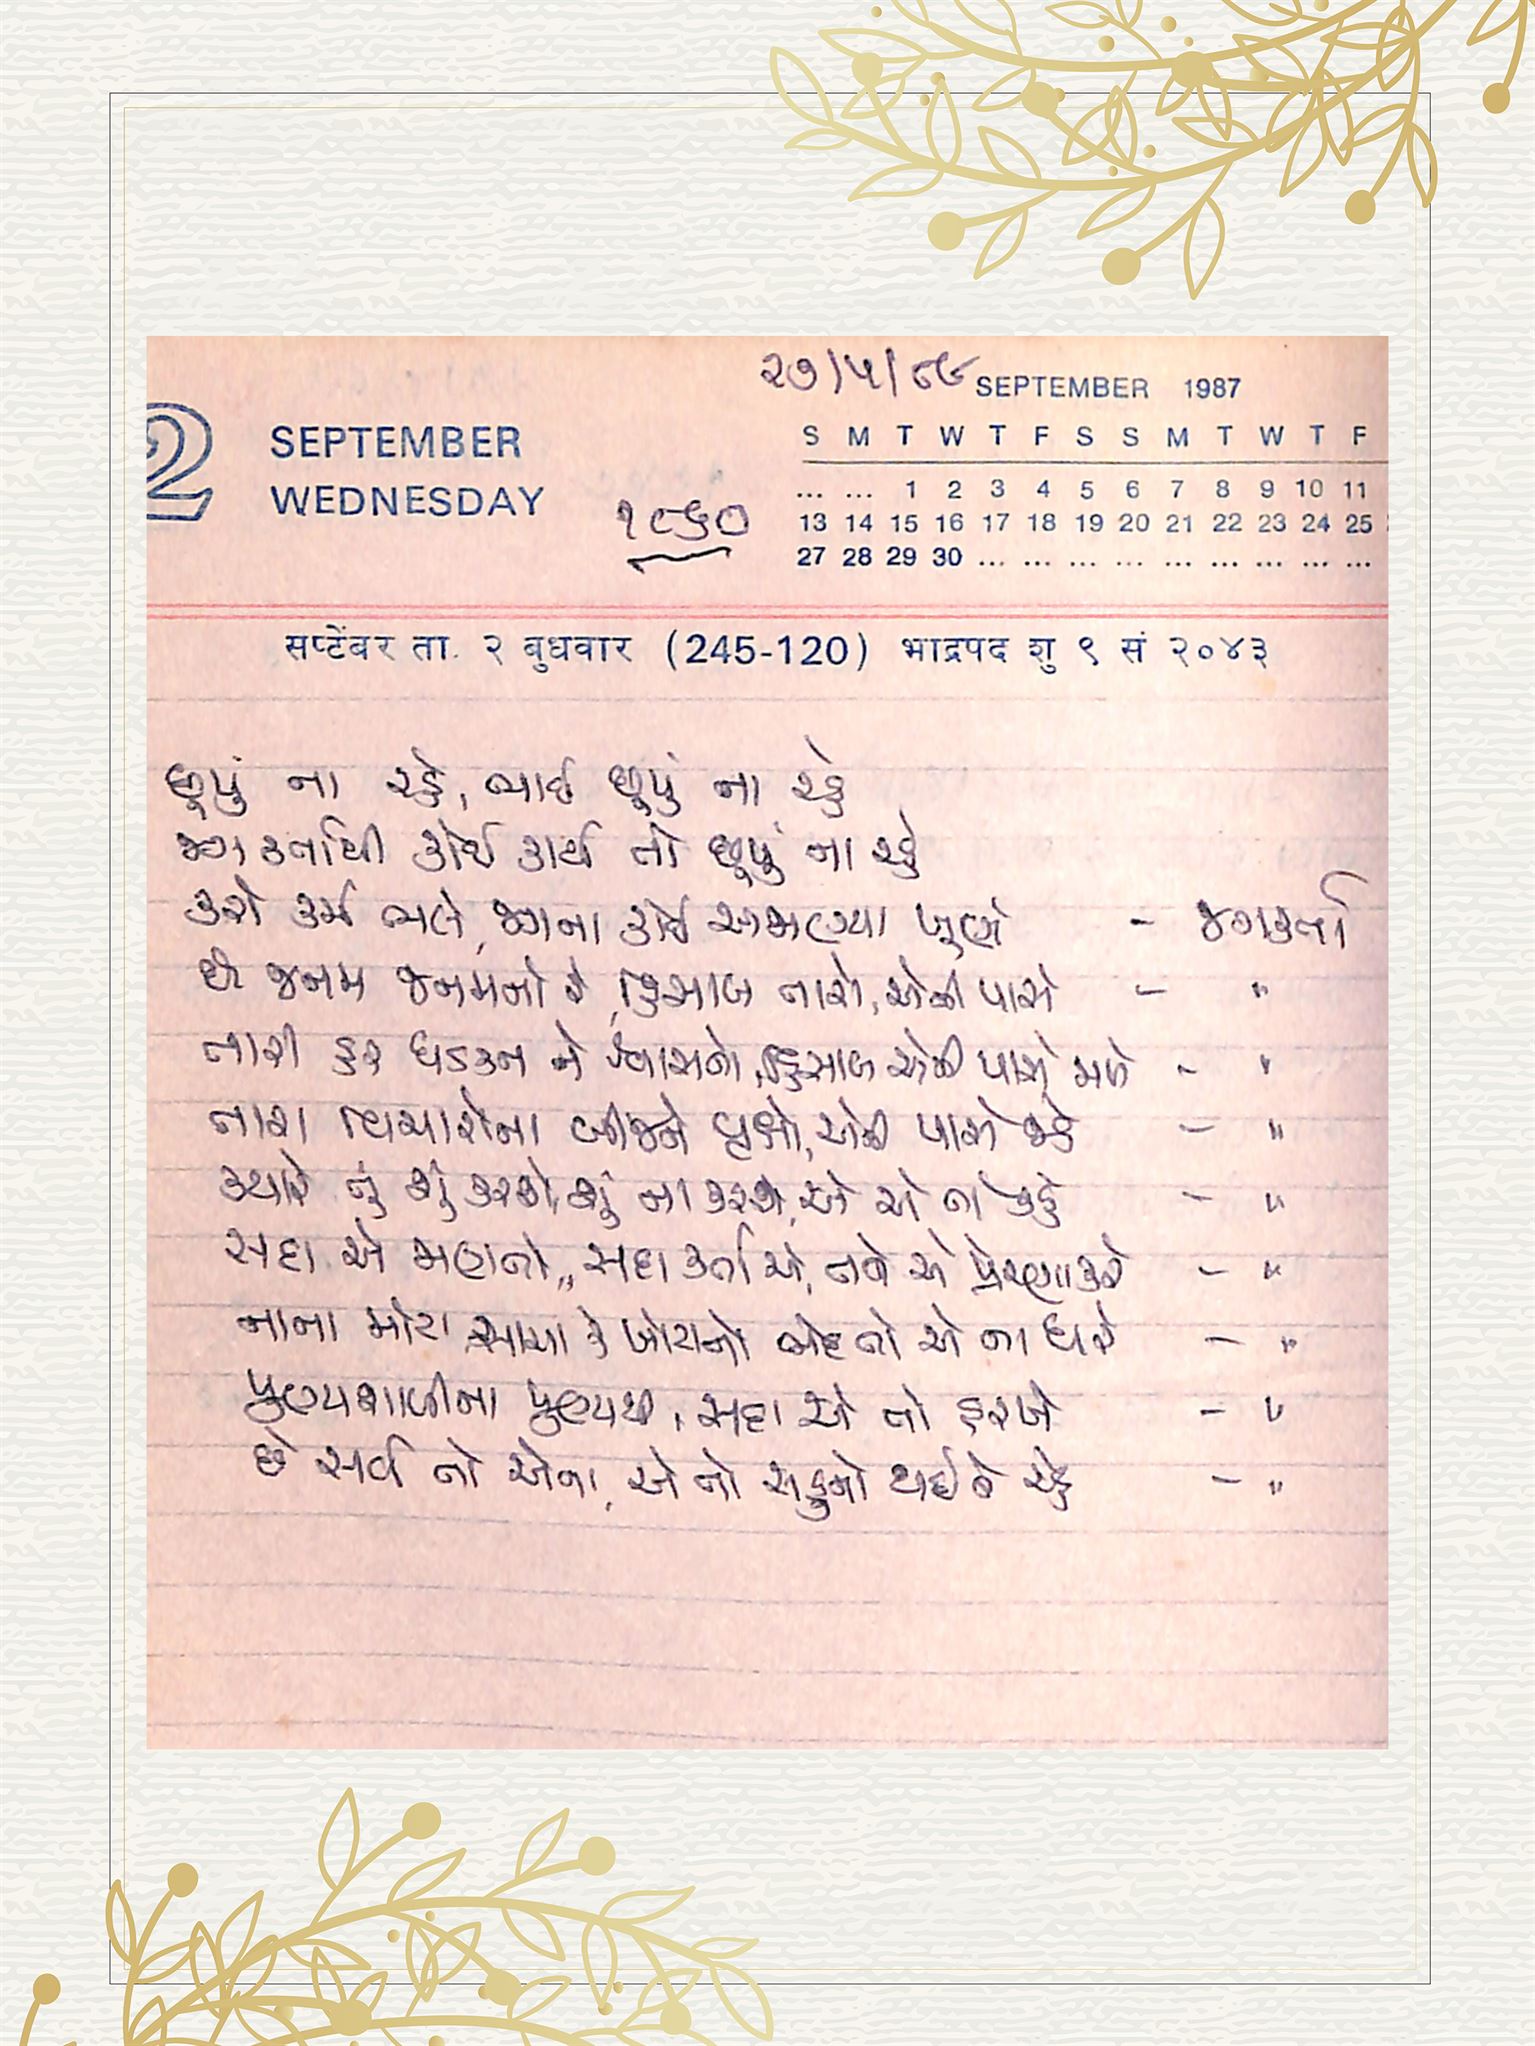 ૨૭/૫/૮૯
SEPTEMBER 1987
2 SEPTEMBER
WEDNESDAY
૧૮૬૦
S M T W T F S S M T W T F
... ... 1 2 3 4 5 6 7 8 9 10 11
13 14 15 16 17 18 19 20 21 22 23 24 25
27 28 29 30 ... ... ... ... ... ... ... ... ...
सप्टेंबर ता. २ बुधवार (245-120) भाद्रपद शु ९ सं २०४३
છૂપું ના રહે, ભાઈ છૂપું ના રહે
જગકર્તાથી કોઈ કાર્ય તો છૂપું ના રહે
કરો કર્મ ભલે, જગના કોઈ અજાણ્યા ખૂણે - જગકર્તા
છે જનમ જનમનો રે, હિસાબ તારો, એની પાસે - "
તારી હર ધડકન ને શ્વાસનો, હિસાબ એની પાસે મળે - "
તારા વિચારોના બીજને વૃક્ષો, એની પાસે જડે - "
ક્યારે તું શું કરશે, શું ના કરશે, એ એ તો કહે - "
સદા એ જાણતો, સદા કર્તા એ, તને એ પ્રેરણા કરે - "
નાના મોટા, સાચા કે ખોટાનો ભેદ તો એ ના ધરે - "
પુણ્યશાળીના પુણ્યથી, સદા એ તો હરખે - "
છે સર્વ તો એના, એ તો સહુનો થઈને રહે - "